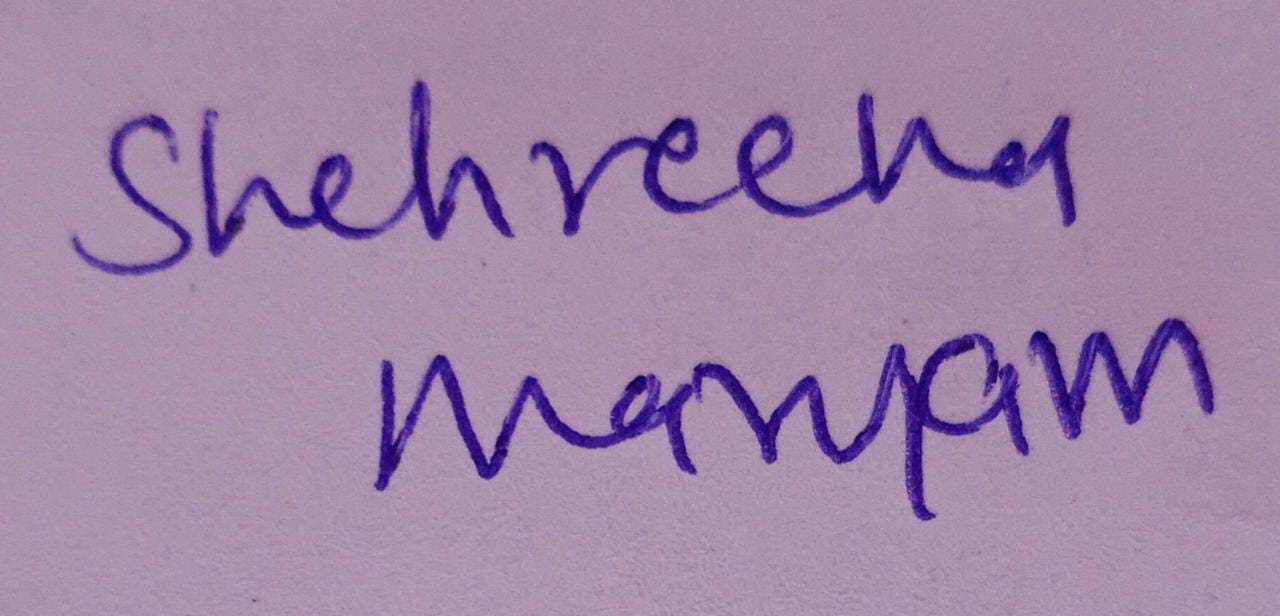 Shehreena
Maryam